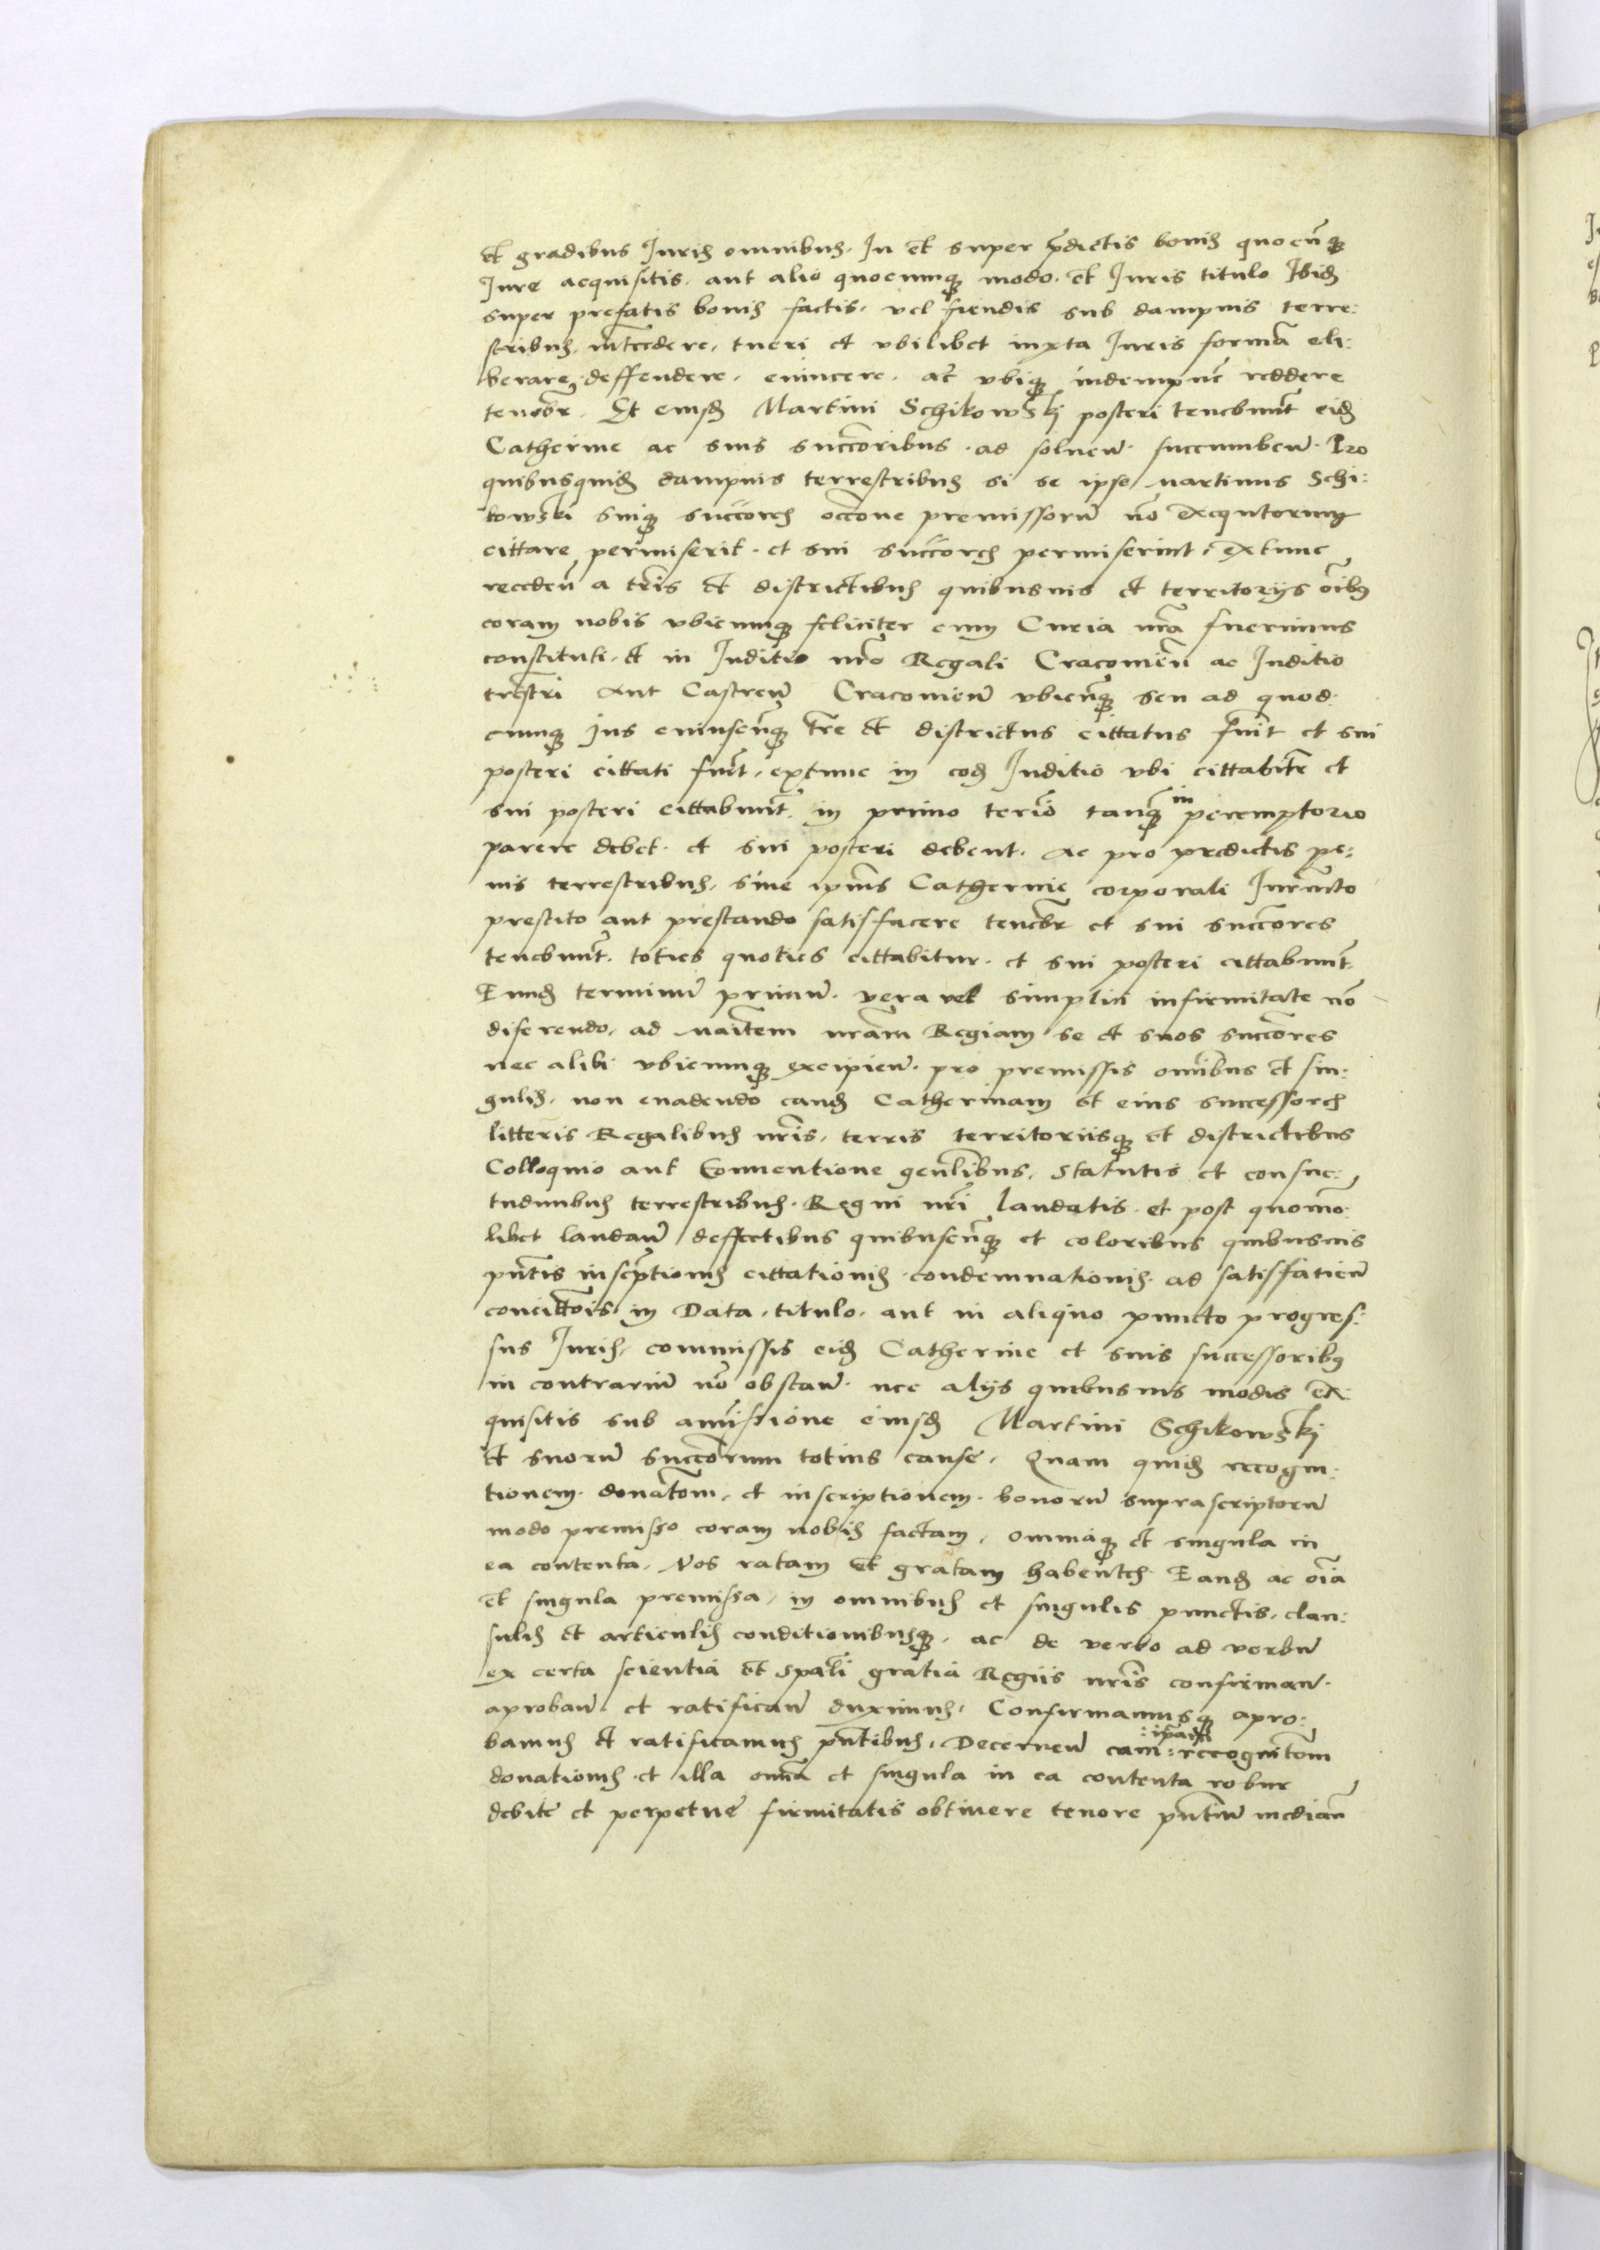 et gradibus Juris omnibus. In et super p̄dictis bonis quocūq
Jure acquisitis. aut alio quocumq modo. et Juris titulo Ibid
super prefatis bonis factis. vel fiendis sub dampnis terre:
stribus. intcedere. tueri et vbilibet iuxta Juris formā eli:
berare. deffendere. euincere. ac vbiq indempnē reddere
tenebr̄. Et eiusd Martini Schikowski posteri tenebunt̄ eid
Catherine ac suis succoribus. ad soluen̄. succumben̄. Pro
quibusquid dampnis terrestribus si se ipse Martinus Schi:
kowski suiq succores occone premissorū nō executorum
cittare permiserit. et sui succores permiserint. extunc
receden̄ a tris et districtibus quibusuis et territorijs oībus
coram nobis vbicumq feliciter cum Curia nrā fuerimus
constituti. et in Juditio nrō Regali Cracouien̄ ac Juditio
trēstri Aut Castren̄ Cracouien̄ vbicūq seu ad quod:
cumq Jus cuiuscūq tre et districtus cittatus fuit̄ et sui
posteri cittati fuīt. extunc in eod Juditio vbi cittabitr̄ et
sui posteri cittabunt̄. in primo teriō tanq in peremptorio
parere debet. et sui posteri debent. Ac pro predictis pe:
nis terrestribus. sine ipius Catherine corporali Juramto
prestito aut prestando satisfacere tenebr̄ et sui succores
tenebunt̄. toties quoties cittabitur. et sui posteri cittabunt̄.
Eund terminū primū. vera vel simplici infirmitate nō
diferendo. ad Maitem nram Regiam se et suos succores
nec alibi vbicumq excipien̄. pro premissis omībus et sin:
gulis. non euadendo eand Catherinam et eius successores
litteris Regalibus nris. terris territoriisq et districtibus
Colloquio aut Conuentione gen̄libus. Statutis et consue:
tudinibus terrestribus. Regni nri laudatis. et post quomō:
libet laudan̄ deffectibus quibuscūq et coloribus quibusuis
pn̄tis inscp̄tionis cittationis. condemnationis. ad satisfacien̄
concittōis. in Data. titulo. aut in aliquo puncto progres:
sus Juris. commissis eid Catherine et suis successoribus
in contrariū nō obstan̄. nec alijs quibusuis modis ex:
quisitis sub amissione eiusd Martini Schikowski
et suorū succorum totius cause. Quam quid recogni:
tionem. donatom. et inscriptionem. bonorū suprascriptorū
modo premisso coram nobis factam. omniaq et singula in
ea contenta. Nos ratam et gratam habentes Eand ac oīa
et singula premissa. in omnibus et singulis punctis. clau:
sulis et articulis conditionibusq. ac de verbo ad verbū
ex certa scientia et spāli gratia Regiis nris confirman̄.
aproban̄ et ratifican̄ duximus. Confirmamusq apro:
bamus et ratificamus pn̄tibus. Decernen̄ eam: recognitom
donationis et illa omīa et singula in ea contenta robur
debitē et perpetuē firmitatis obtinere tenore pn̄tiū median̄